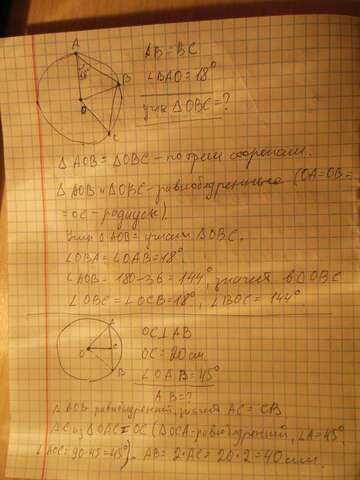 A
B
O
C
AB=BC
∠BAO=18°
углы ΔOBC=?
ΔAOB=ΔOBC-по трем сторонам.
ΔAOB и ΔOBC-равнобедренные (OA=OB=
=OC-радиусы)
Углы ΔAOB=углам ΔOBC.
∠OBA=∠OAB=18°
∠AOB=180-36=144°, значит, в ΔOBC
∠OBC=∠OCB=18°, ∠BOC=144°
A
O
C
B
OC⊥AB
OC=20см
∠OAB=45°
AB=?
ΔAOB-равнобедренный, значит AC=CB
AC из ΔOAC=OC (ΔOCA-равнобедренный, ∠A=45°,
∠AOC=90-45=45°). AB=2·AC=20·2=40см.